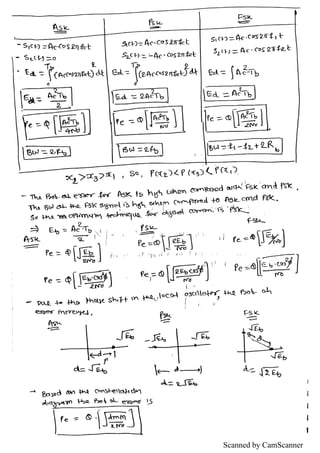 ASK
- S₁(t) = Ac·cos2πfct
- S₂(t) = 0
- Ed = ∫(Ac cos2πfct)² dt
Ed = Ac²Tb / 2
Pe = Q[√(Ac²Tb / 4N0)]
BW = 2Rb
PSK
S₁(t) = Ac·cos2πfct
S₂(t) = -Ac·cos2πfct
Ed = ∫(2Ac cos2πfct)² dt
Ed = 2Ac²Tb
Pe = Q[√(Ac²Tb / N0)]
BW = 2Rb
FSK
S₁(t) = Ac·cos2πf₁t
S₂(t) = Ac·cos2πf₂t
Ed = ∫Ac²Tb
Ed = Ac²Tb
Pe = Q[√(Ac²Tb / 2N0)]
BW = f₁-f₂+2Rb
x₂ > x₃ > x₁, So, P(x₂) < P(x₃) < P(x₁)
- The Prob of error for ASK is high when compared with FSK and PSK.
The BW of the FSK signal is high when compared to ASK and PSK.
So the optimum technique for digital comm. is PSK.
⇒ Eb = Ac²Tb / 2
ASK
Pe = Q[√(Eb / 2N0)]
Pe = Q[√(Eb·cos²φ / 2N0)]
PSK
Pe = Q[√(2Eb / N0)]
Pe = Q[√(2Eb cos²φ / N0)]
FSK
Pe = Q[√(Eb / N0)]
Pe = Q[√(Eb·cos²φ / N0)]
- Due to the Phase shift in the local oscillator, the Prob of
error increases,
ASK
√Eb
d
d = √Eb
PSK
-√Eb
√Eb
d
d = 2√Eb
FSK
√Eb
√Eb
d = √2Eb
→ Based on the constellation
diagram the Prob of error is
Pe = Q·[√(d²min / 2N0)]
Scanned by CamScanner